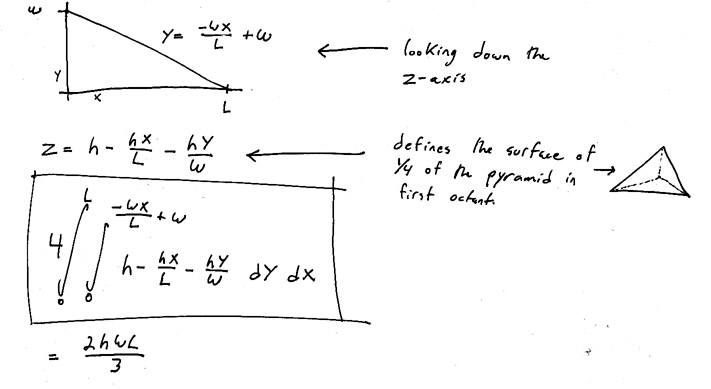 w
y = -wx/L + w
looking down the
z-axis
y
x
L
z = h - hx/L - hy/w
defines the surface of
1/4 of the pyramid in
first octant
4 ∫₀ᴸ ∫₀^(-wx/L + w) h - hx/L - hy/w dy dx
= 2hwL/3